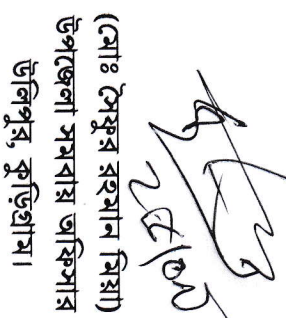 (মোঃ সৈফুর রহমান মিয়া)
উপজেলা সমবায় অফিসার
উলিপুর, কুড়িগ্রাম।